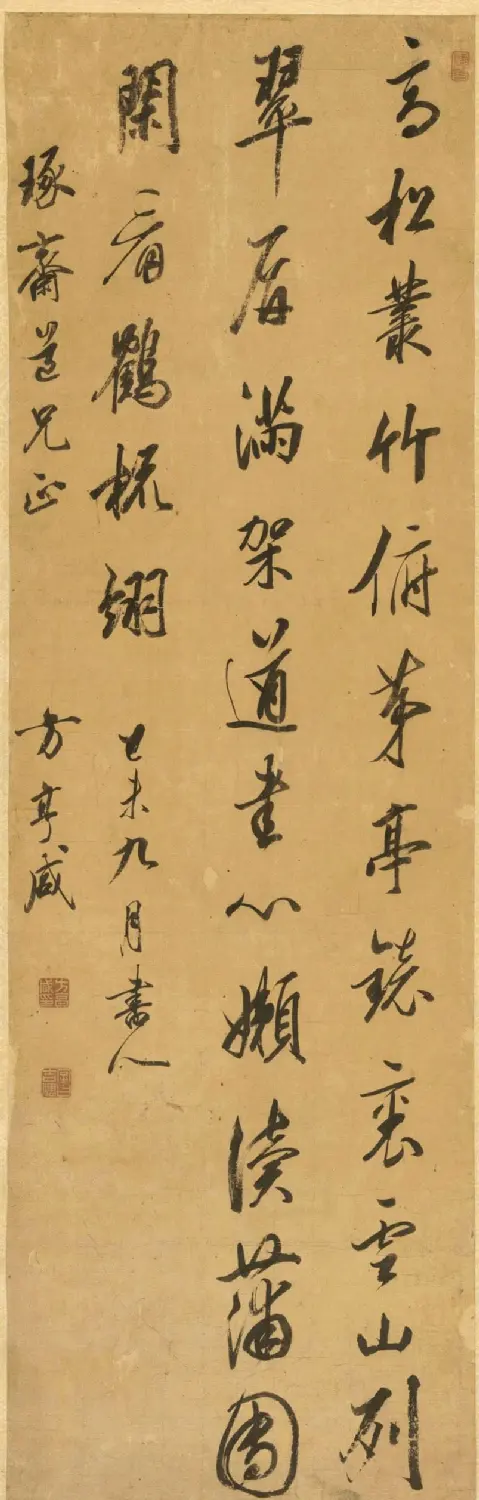 高松叢竹俯茅亭鏡裏雲山列
翠屏滿架道書心嬾讀蒲團
閑看鶴梳翎
己未九月書似
琢齋道兄正
方亨咸